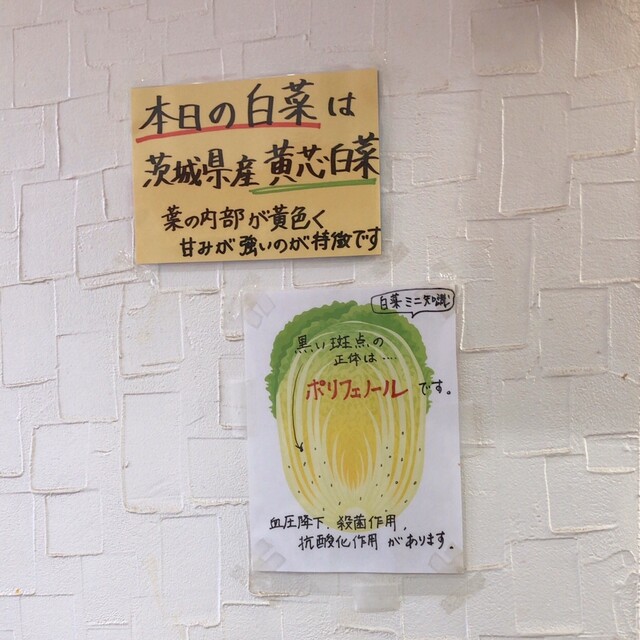 本日の白菜は
茨城県産 黄芯白菜
葉の内部が黄色く
甘みが強いのが特徴です
白菜ミニ知識
黒い斑点の
正体は‥‥
ポリフェノールです。
血圧降下、殺菌作用、
抗酸化作用があります。